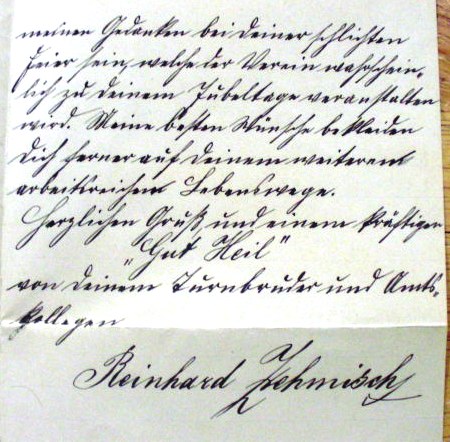 meinen Gedanken bei deiner schlichten
Feier sein, welche der Verein wahrschein-
lich zu deinem Jubeltage veranstalten
wird. Meine besten Wünsche bekleiden
dich ferner auf deinem weiteren
arbeitsreichem Lebenswege.
Herzlichen Gruß und einem kräftigen
„Gut Heil"
von deinem Turnbruder und Amts-
kollegen
Reinhard Zehmisch